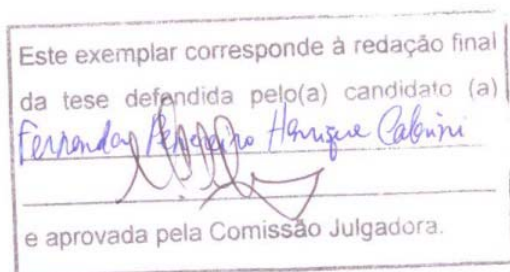 Este exemplar corresponde à redação final
da tese defendida pelo(a) candidato (a)
Henrique
e aprovada pela Comissão Julgadora.